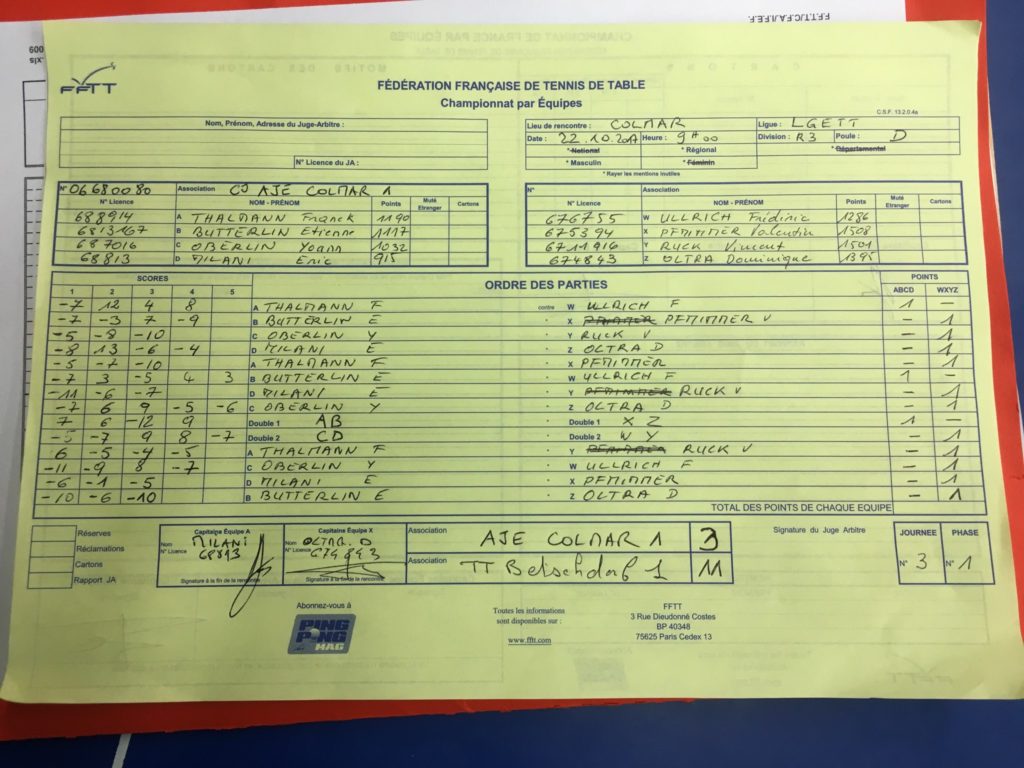 FFTT
FÉDÉRATION FRANÇAISE DE TENNIS DE TABLE
Championnat par Équipes
C.S.F. 13-2.0.4a
Nom, Prénom, Adresse du Juge-Arbitre :
N° Licence du JA :
Lieu de rencontre : COLMAR Ligue : LGETT
Date : 22.10.2017 Heure : 9H00 Division : R3 Poule : D
* National * Régional * Départemental
* Masculin * Féminin
* Rayer les mentions inutiles
N° 06680080 Association CJ AJE COLMAR 1
N° Licence NOM - PRÉNOM Points Muté Etranger Cartons
688914 A THALMANN Franck 1190
6813167 B BUTTERLIN Etienne 1117
687016 C OBERLIN Yoann 1032
68813 D MILANI Eric 915
N° Association
N° Licence NOM - PRÉNOM Points Muté Etranger Cartons
676755 W ULLRICH Frédéric 1286
675394 X PFMIMMER Valentin 1508
6711916 Y RUCK Vincent 1501
674843 Z OLTRA Dominique 1395
SCORES ORDRE DES PARTIES POINTS
1 2 3 4 5 ABCD WXYZ
-7 12 4 8 A THALMANN F contre W ULLRICH F 1 -
-7 -3 7 -9 B BUTTERLIN E X PFMIMMER V - 1
-5 -8 -10 C OBERLIN Y Y RUCK V - 1
-8 13 -6 -4 D MILANI E Z OLTRA D - 1
-5 -7 -10 A THALMANN F X PFMIMMER - 1
-7 3 -5 4 3 B BUTTERLIN E W ULLRICH F 1 -
-11 -6 -7 D MILANI E Y PFMIMMER RUCK V - 1
-7 6 9 -5 -6 C OBERLIN Y Z OLTRA D - 1
7 6 -12 9 Double 1 AB Double 1 X Z 1 -
-5 -7 9 8 -7 Double 2 CD Double 2 W Y - 1
6 -5 -4 -5 A THALMANN F Y RUCK V - 1
-11 -9 8 -7 C OBERLIN Y W ULLRICH F - 1
-6 -1 -5 D MILANI E X PFMIMMER - 1
-10 -6 -10 B BUTTERLIN E Z OLTRA D - 1
TOTAL DES POINTS DE CHAQUE EQUIPE
Réserves
Réclamations
Cartons
Rapport JA
Capitaine Équipe A
Nom MILANI
N° Licence 68813
Signature à la fin de la rencontre
Capitaine Équipe X
Nom OLTRA D
N° Licence 674843
Signature à la fin de la rencontre
Association AJE COLMAR 1 3
Association TT Betschdorf 1 11
Signature du Juge Arbitre
JOURNEE PHASE
N° 3 N° 1
Abonnez-vous à
PING PONG MAG
Toutes les informations
sont disponibles sur :
www.fftt.com
FFTT
3 Rue Dieudonné Costes
BP 40348
75625 Paris Cedex 13